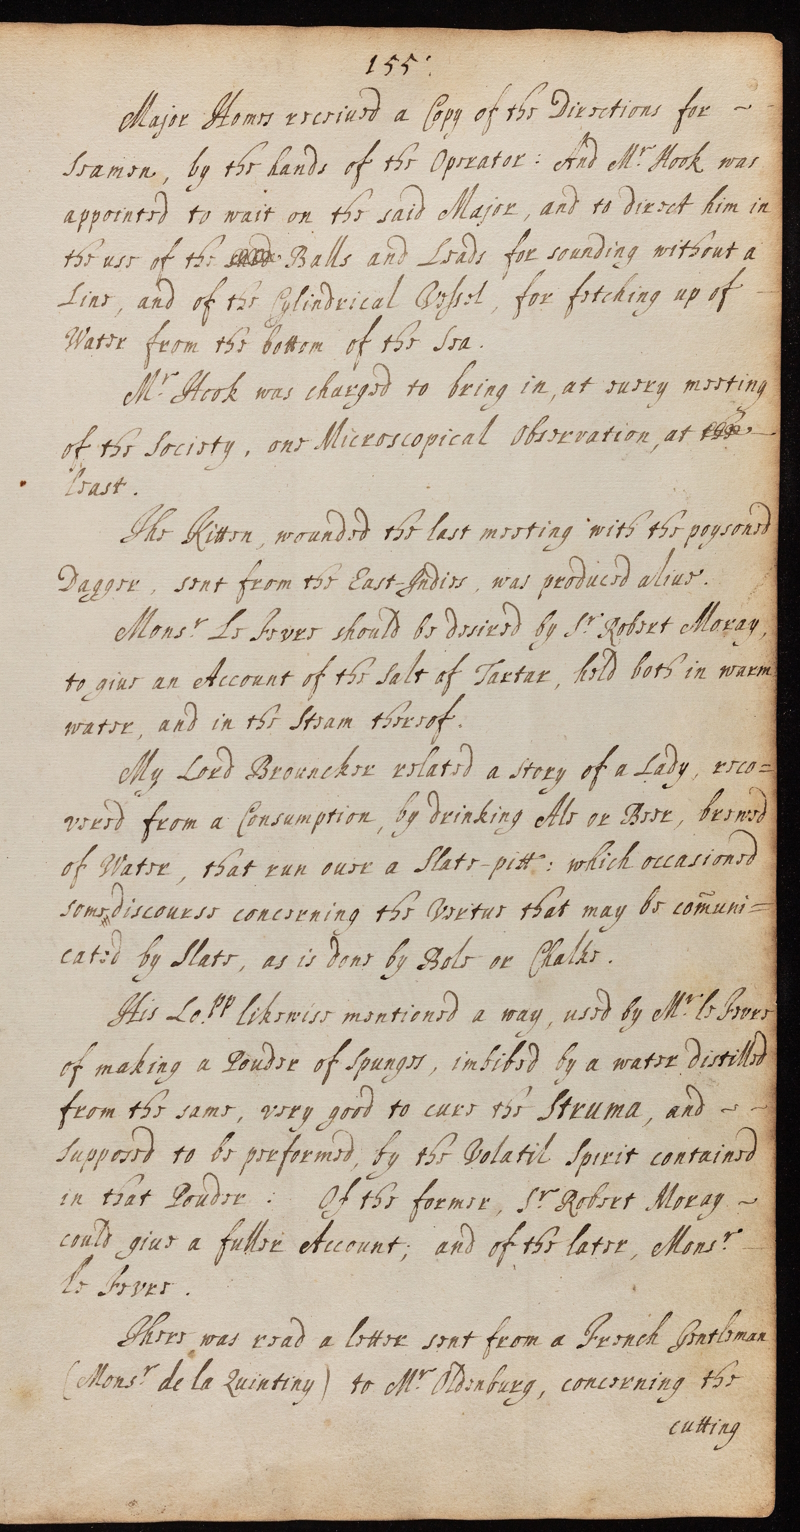 155.
Major Homes received a Copy of the Directions for ~
Seamen, by the hands of the Operator: And Mr. Hook was
appointed to wait on the said Major, and to direct him in
the use of the Balls and Leads for sounding without a
Line, and of the Cylindrical Vessel, for fetching up of
Water from the bottom of the Sea.
Mr. Hook was charged to bring in, at every meeting
of the Society, one Microscopical Observation, at
least.
The Kitten, wounded the last meeting with the poysoned
Dagger, sent from the East-Indies, was produced alive.
Monsr. Le Fevre should be desired by Sr. Robert Moray,
to give an Account of the Salt of Tartar, held both in warm
water, and in the Steam thereof.
My Lord Brouncker related a story of a Lady, reco=
vered from a Consumption, by drinking Ale or Beer, brewed
of Water, that run over a Slate-pitt: which occasioned
some discourse concerning the Vertue that may be com̄uni=
cated by Slate, as is done by Bole or Chalke.
His Lo.pp likewise mentioned a way, used by Mr. le Fevre
of making a Pouder of Spunges, imbibed by a water distilled
from the same, very good to cure the Struma, and ~ ~
supposed to be performed, by the Volatil Spirit contained
in that Pouder: Of the former, Sr. Robert Moray ~
could give a fuller Account; and of the later, Monsr.
le Fevre.
There was read a letter sent from a French Gentleman
(Monsr. de la Quintiny) to Mr. Oldenburg, concerning the
cutting